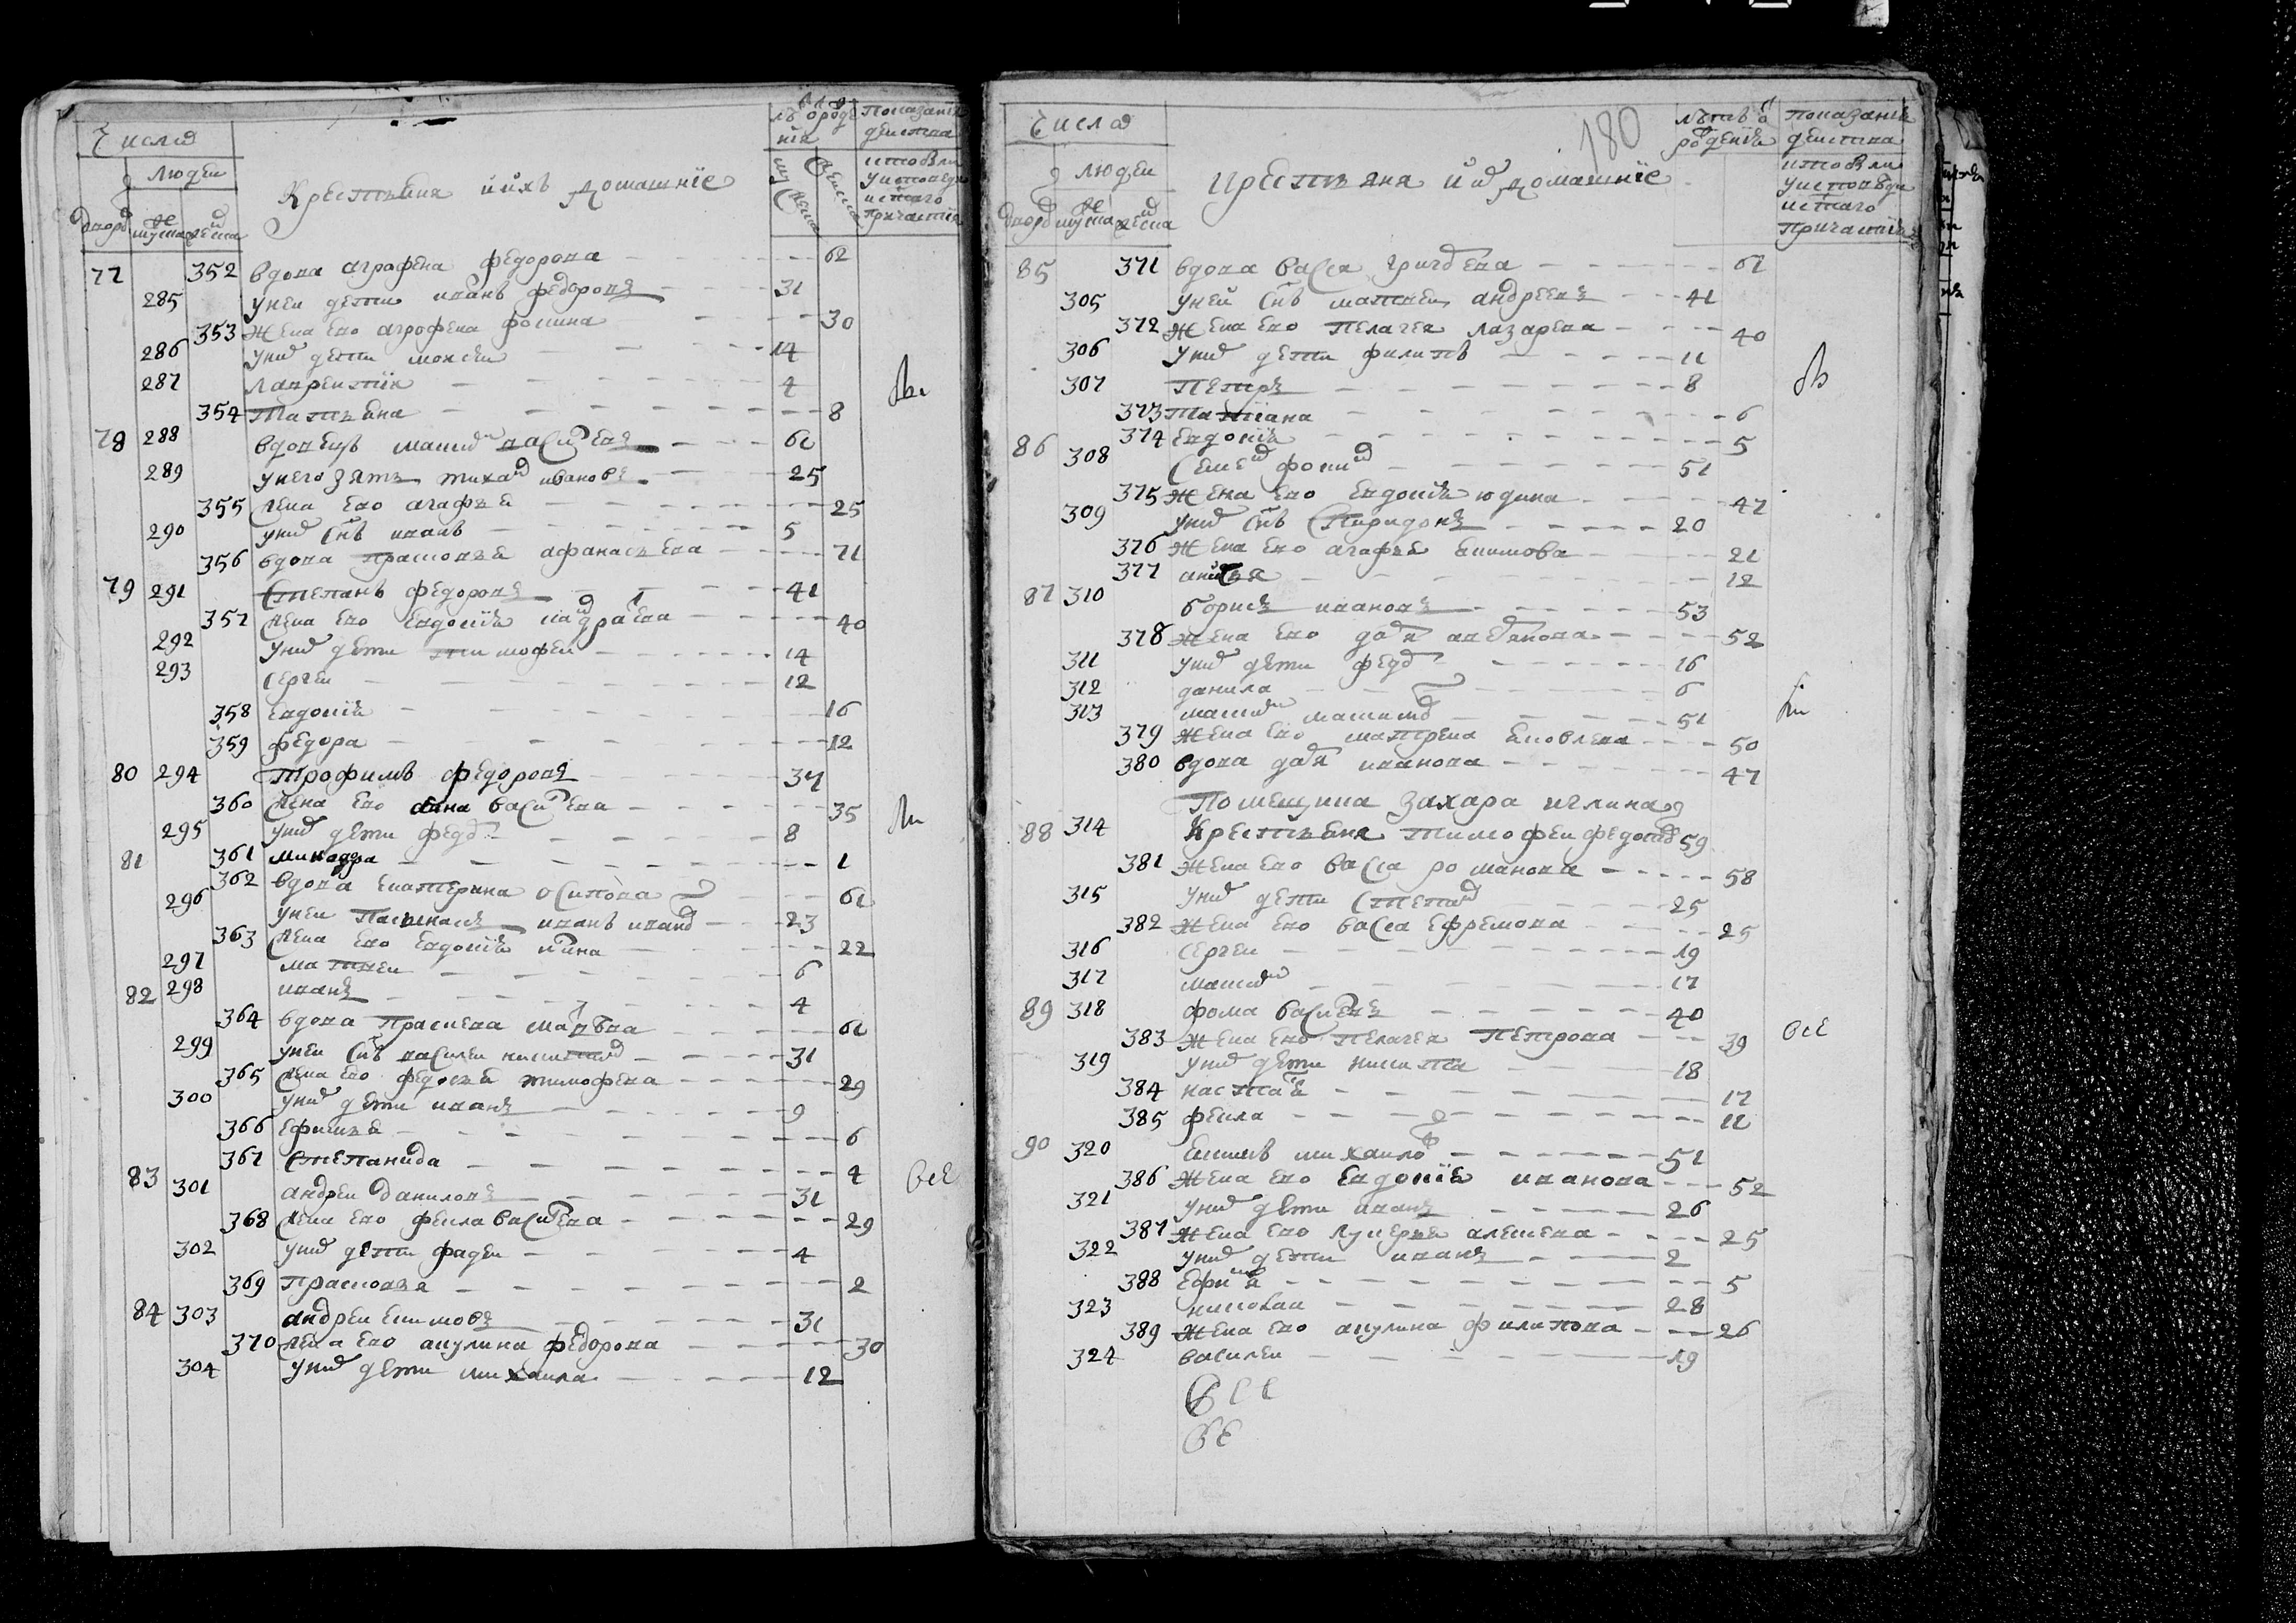 Числа
людеи
дворов мужеска женска
Крестьяня и ихъ домашніе
лѣта от рожденія
муска
женска
Показаніе деиства
кто был
у исповеди
и с͠таго
причастія
77 352 вдова аграфена федорова 62
285 у неи дети иванъ федоровъ 31
353 жена ево агрофена фомина 30
286 у них дети моисеи 14
287 лаврентіи 4
354 татьяна 8
78 288 вдовецъ максим васильевъ 61
289 у него зять тихан ивановъ 25
355 жена ево агафья 25
290 у них сн͠ъ иванъ 5
356 вдова прасковья афанасьева 71
79 291 Степанъ федоровъ 41
357 жена ево евдокія 40
292 у них дети тимофеи 14
293 сергеи 12
358 евдокія 16
359 федора 12
80 294 Трофимъ федоровъ 37
360 жена ево анна васильева 35
295 у них дети федор 8
81 361 минодра 1
362 вдова екатерина осипова 61
296 у неи пасынакъ иванъ иванов 23
363 жена ево евдокія 22
297 матвеи 6
82 298 иванъ 4
364 вдова праскева 61
299 у неи сн͠ъ василеи никитин 31
365 жена ево федосья тимофева 29
300 у них дети иванъ 9
366 ефимья 6
367 степанида 4
83 301 андреи даниловъ 31
все
368 жена ево фекла васильева 29
302 у них дети фадеи 4
369 прасковья 2
84 303 андреи екимовъ 31
370 жена ево акулина федорова 30
304 у них дети михаила 12
180
Числа
людеи
дворов мужеска женска
крестьяня и их домашніе
лѣтъ от рожденія
показаніе
деиства
кто был
у исповѣди
и с͠таго
причастія
85 371 вдова васса григорева 61
305 у неи сн͠ъ матвеи андреевъ 41
372 жена ево пелагея лазарева 40
306 у них дети филипъ 11
307 петръ 8
373 татіана 6
374 евдокія 5
86 308 семен фомин 51
375 жена ево евдокія юдина 47
309 у них сн͠ъ спиридонъ 20
376 жена ево агафья екимова 21
377 анисья 12
87 310 борисъ ивановъ 53
378 жена ево дарья 52
311 у них дети федор 16
312 данила 6
313 максим 51
379 жена ево матрена яковлева 50
380 вдова дарья иванова 47
Помещика захара иглина
88 314 крестьяня тимофеи федотов 59
381 жена ево васса романова 58
315 у них дети степан 25
382 жена ево васса ефремова 25
316 сергеи 19
317 максим 17
89 318 фома васильевъ 40
383 жена ево пелагея петрова 39
все
319 у них дети никита 18
384 настасья 17
385 фекла 11
90 320 екимъ михаилов 51
386 жена ево евдокія иванова 52
321 у них дети иванъ 26
387 жена ево лукерья алексева 25
322 у них дети иванъ 2
388 ефимья 5
323 николаи 28
389 жена ево акулина филипова 26
324 василеи 19
Все